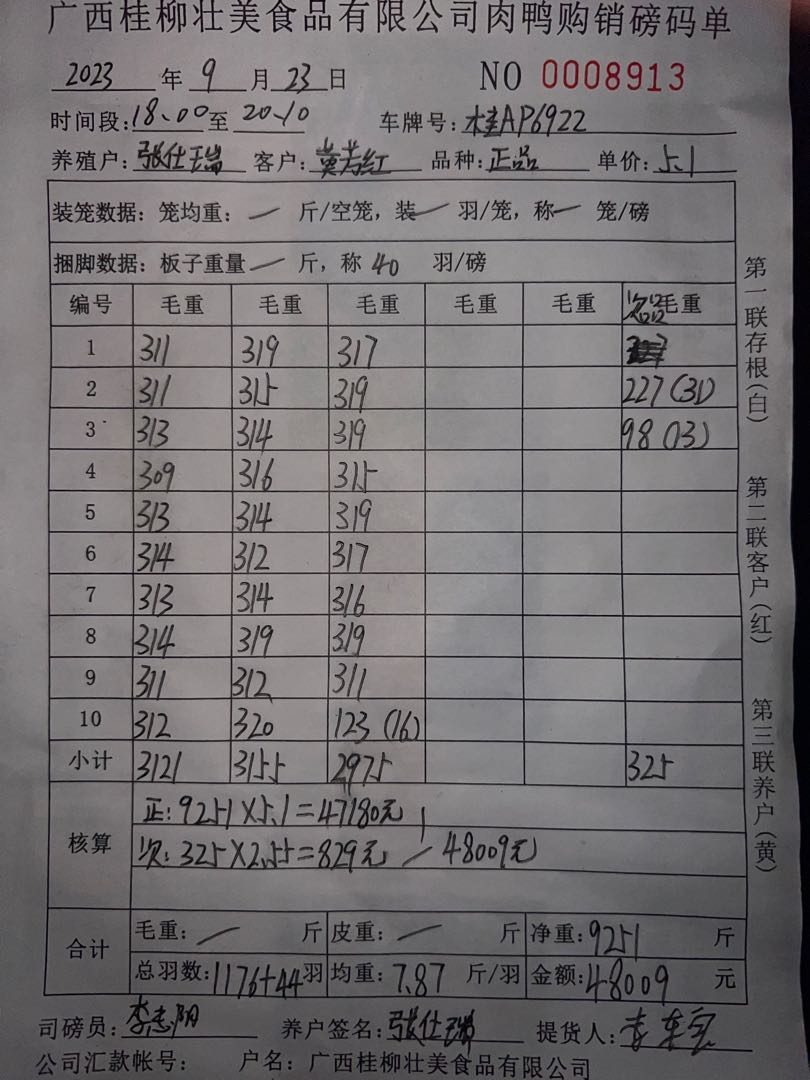 广西桂柳壮美食品有限公司肉鸭购销磅码单
2023 年 9 月 23 日 NO 0008913
时间段:18.00至 20.10 车牌号:桂AP6922
养殖户:张仕瑞 客户:黄芳红 品种:正品 单价:5.1
装笼数据:笼均重: — 斤/空笼,装 — 羽/笼,称 — 笼/磅
捆脚数据:板子重量 — 斤,称 40 羽/磅
编号 毛重 毛重 毛重 毛重 毛重 次品毛重
1 311 319 317
2 311 315 319 227(31)
3 313 314 319 98(13)
4 309 316 315
5 313 314 319
6 314 312 317
7 313 314 316
8 314 319 319
9 311 312 311
10 312 320 123(16)
小计 3121 3155 2975 325
核算
正:9251×5.1=47180元
次:325×2.55=829元 / 48009元
合计
毛重: — 斤 皮重: — 斤 净重:9251 斤
总羽数:1176+44羽 均重:7.87 斤/羽 金额:48009 元
司磅员:李志阳 养户签名:张仕瑞 提货人:李
公司汇款帐号: 户名:广西桂柳壮美食品有限公司
第一联存根(白)
第二联客户(红)
第三联养户(黄)